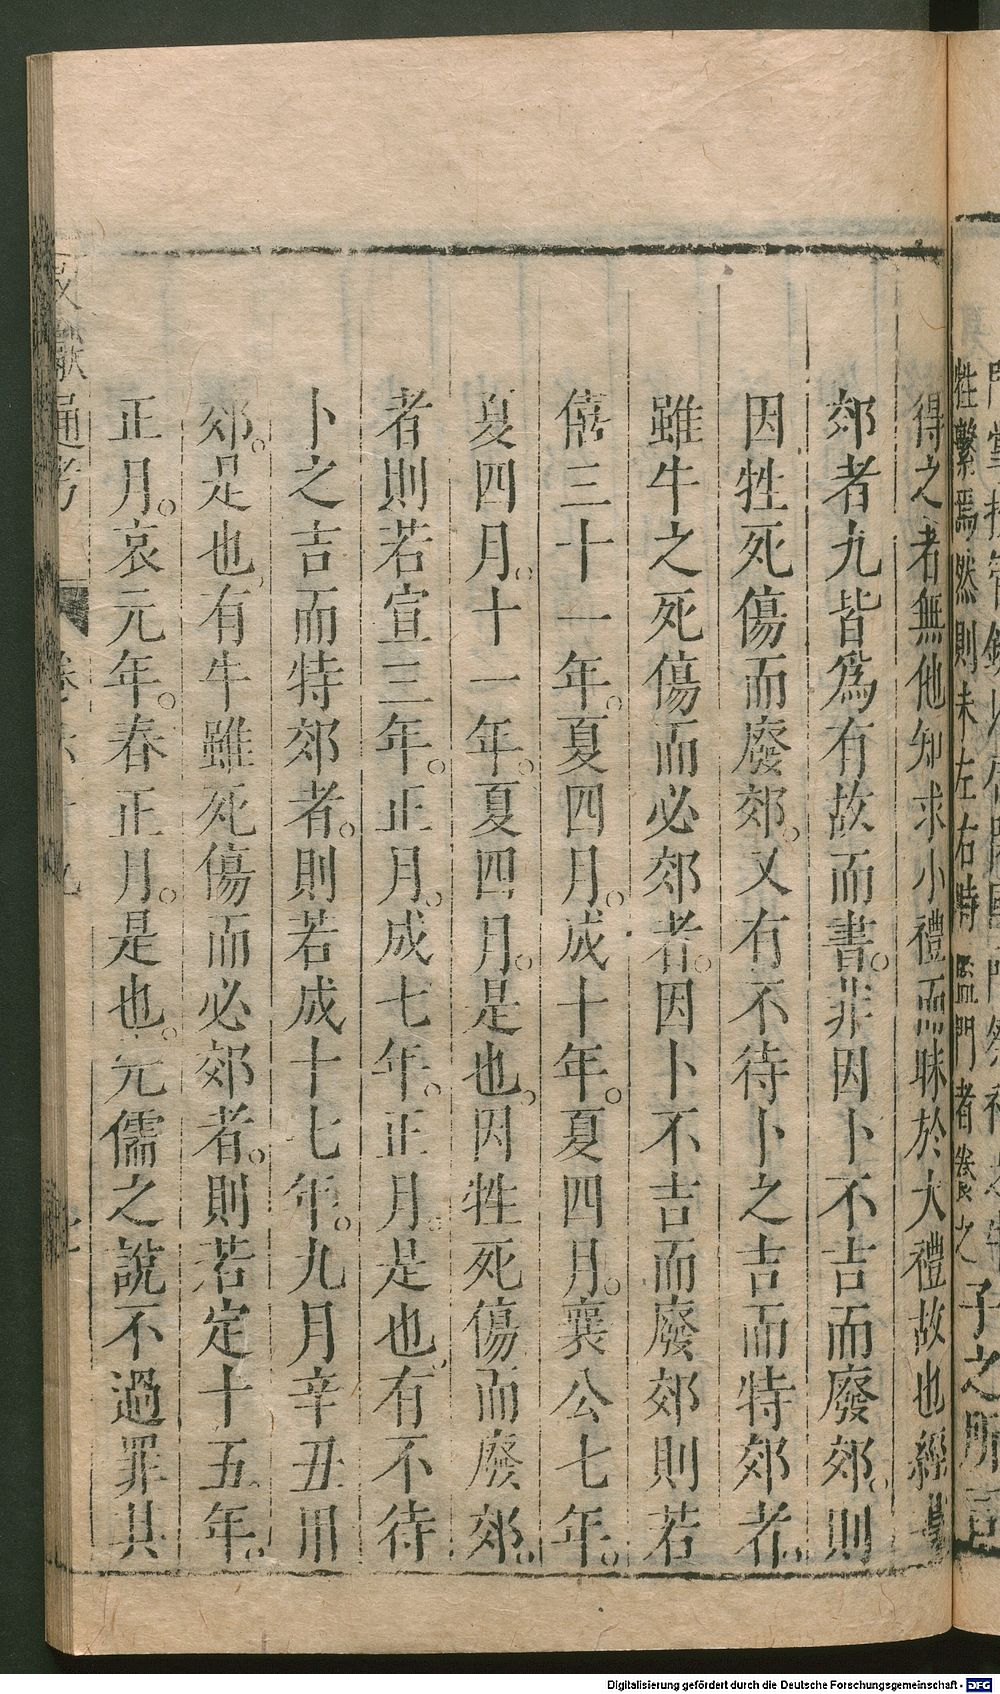 牲繫焉然則未左右時監門者養之
子之所
得之者無他知求小禮而昧於大禮故也經書
郊者九皆爲有故而書。非因卜不吉而廢郊。則
因牲死傷而廢郊。又有不待卜之吉而特郊者。
雖牛之死傷而必郊者。因卜不吉而廢郊則若
僖三十一年。夏四月。成十年。夏四月。襄公七年。
夏四月。十一年。夏四月。是也。因牲死傷而廢郊。
者則若宣三年。正月。成七年。正月。是也。有不待
卜之吉而特郊者。則若成十七年。九月辛丑用
郊。是也。有牛雖死傷而必郊者。則若定十五年。
正月。哀元年。春正月。是也。元儒之說不過罪其
文獻通考
Digitalisierung gefördert durch die Deutsche Forschungsgemeinschaft - DFG